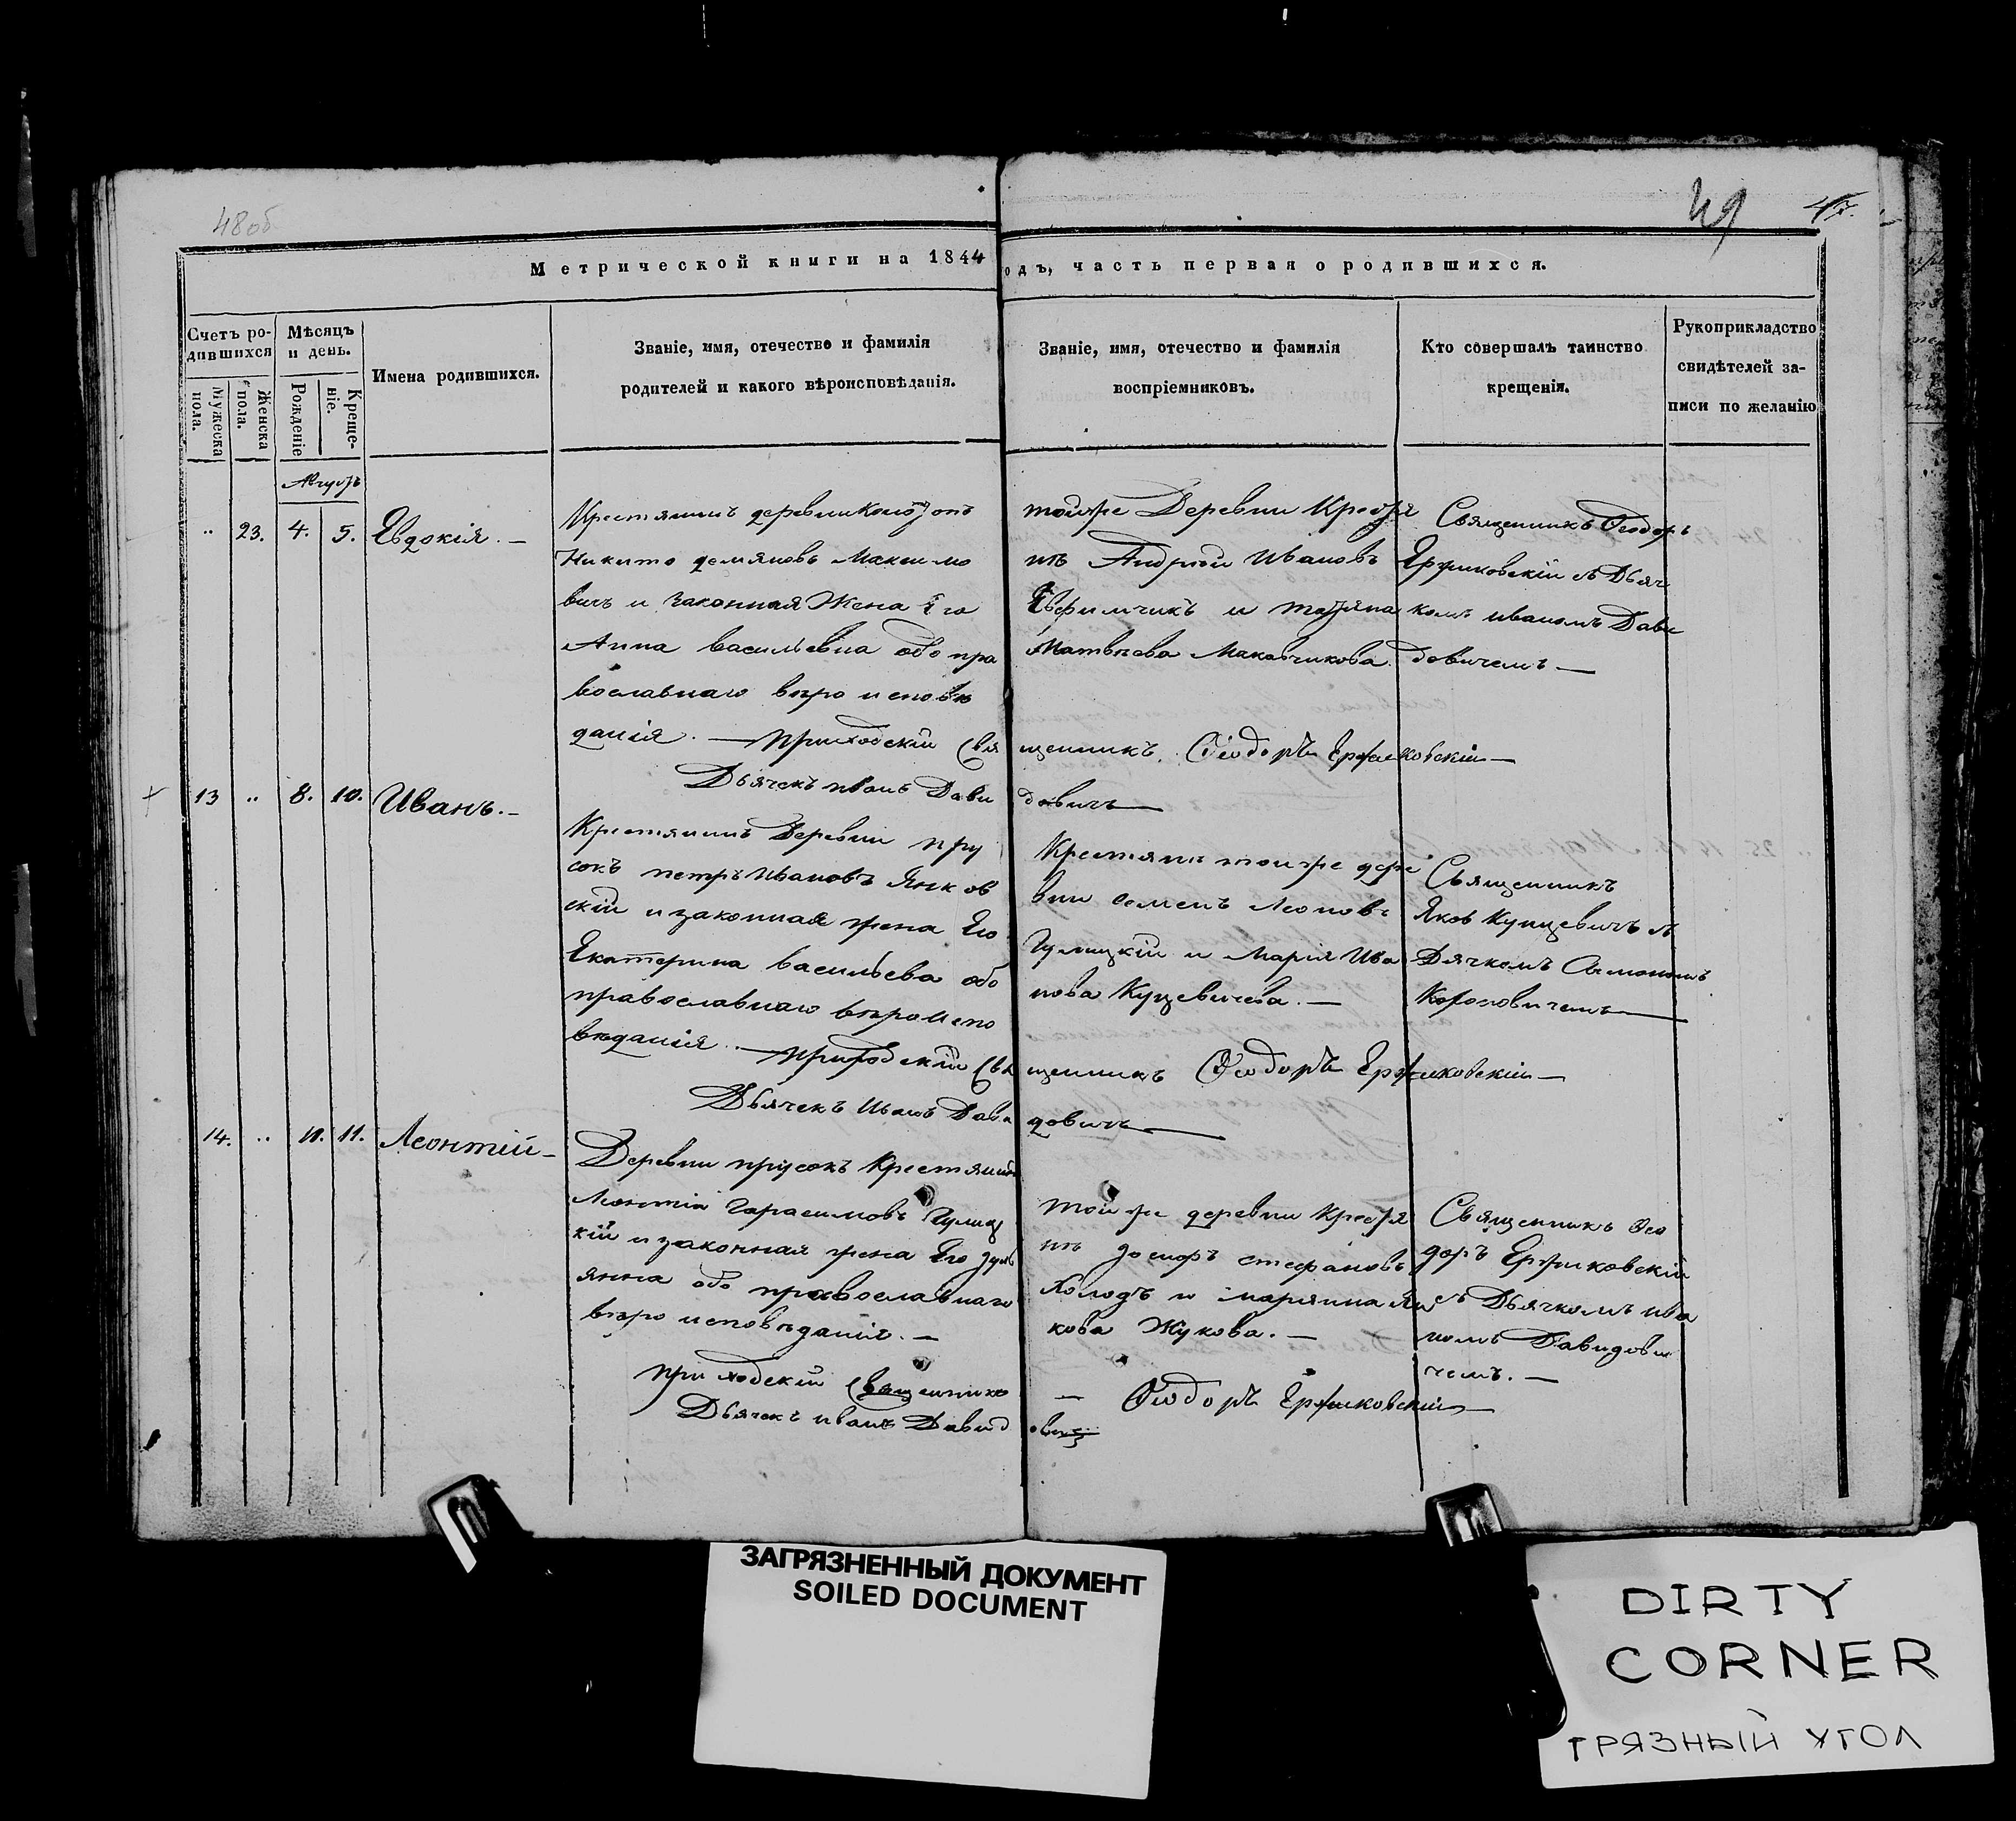 48об
49
47.
Метрической книги на 1844 одъ, часть первая о родившихся.
Счетъ родившихся
Мужеска пола.
Женска пола.
Мѣсяцъ и день.
Рожденіе
Крещеніе.
Имена родившихся.
Званіе, имя, отечество и фамилія
родителей и какого вѣроисповѣданія.
Званіе, имя, отечество и фамилія
воспріемниковъ.
Кто совершалъ таинство
крещенія.
Рукоприкладство
свидѣтелей за-
писи по желанію
Августъ
.. 23. 4. 5. Евдокія. —
Крестянинъ деревни
Никита демяновъ Максимо
вичъ и законная Жена Его
Анна васильевна обо пра
вославнаго вѣро исповѣ
данія. — приходскій свя
Дьячекъ иванъ Дави
тойже Деревни Крестя
нъ Андрей Ивановъ
Ефимчикъ и татяна
Матвѣева
щенникъ. Ѳеодоръ Ержиковскій —
довичъ —
Священникъ Ѳеодоръ
Ержиковскій съ Дьяч
комъ иваномъ Дави
довичемъ —
13 .. 8. 10. Иванъ. —
Крестянинъ Деревни пру
сокъ петръ Ивановъ Янков
скій и законная жена Его
Екатерина васильева обо
православнаго вѣро испо
вѣданія. — приходскій свя
Дьячекъ Иванъ Дави
Крестянъ тойже дере
вни семенъ Леоновъ
Гулицкій и Марія Ива
нова Куцевичева. —
щенникъ Ѳеодоръ Ержиковскій —
довичъ —
Священникъ
Яковъ Кунцевичъ съ
Дячкомъ
14. .. 11. 11. Леонтій —
Деревни прусокъ Крестянинъ
Леонтій Гарасимовъ Гулиц
кій и законная жена Его
янна обо православнаго
вѣро исповѣданія. —
приходскій священникъ
Дьячекъ иванъ Давид
той же деревни Крестя
нъ стефановъ
Холодъ и марянна
кова Жукова. —
— Ѳеодоръ Ержиковскій —
овичъ
Священникъ Ѳео
доръ Ержиковскій
съ Дьячкомъ ива
номъ Давидови
чемъ. —
ЗАГРЯЗНЕННЫЙ ДОКУМЕНТ
SOILED DOCUMENT
DIRTY
CORNER
ГРЯЗНЫЙ УГОЛ